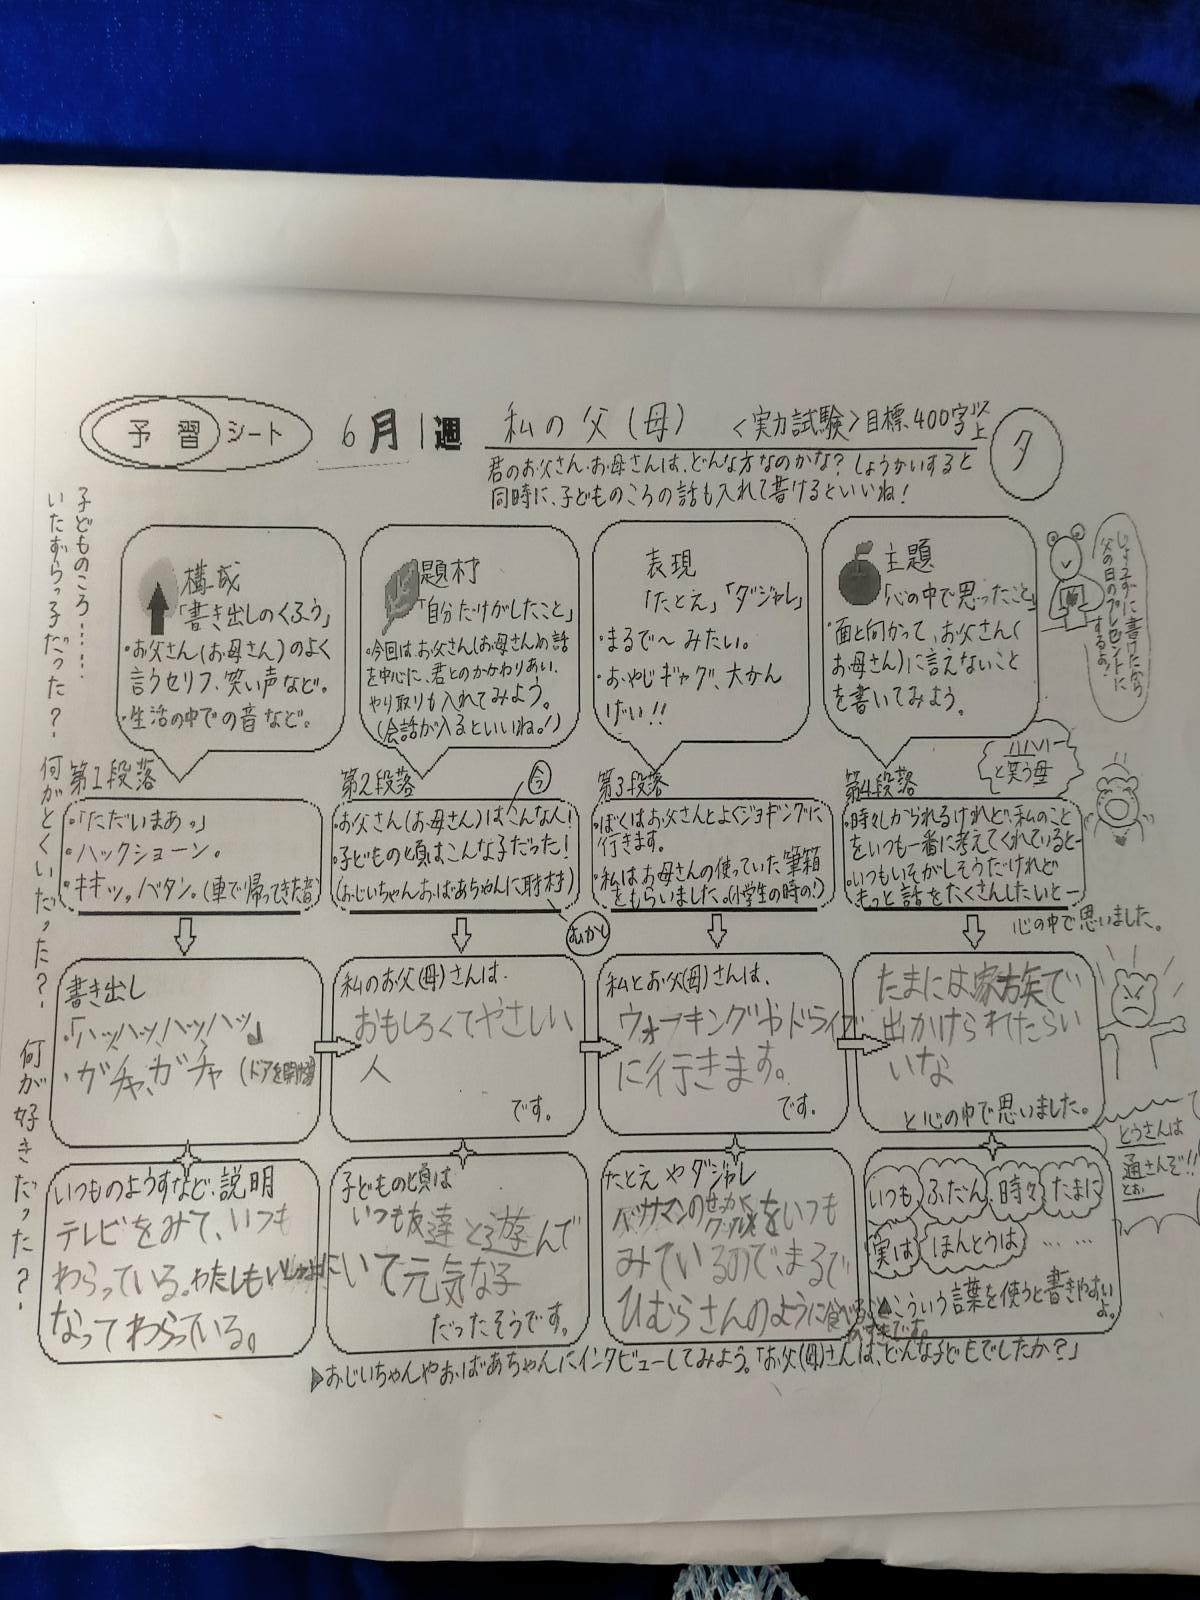 予習シート
6月1週
私の父(母)
<実力試験>目標400字以上
夕
君のお父さん・お母さんは、どんな方なのかな?しょうかいすると
同時に、子どものころの話も入れて書けるといいね!
子どものころ……
いたずらっ子だった?何がとくいだった?何が好きだった?
構成
「書き出しのくふう」
・お父さん(お母さん)のよく
言うセリフ、笑い声など。
・生活の中での音など。
題材
「自分だけがしたこと」
・今回は、お父さん(お母さん)の話
を中心に、君とのかかわりあい、
やり取りも入れてみよう。
(会話が入るといいね。!)
表現
「たとえ」「ダジャレ」
・まるで〜みたい。
・おやじギャグ、大かん
げい!!
主題
「心の中で思ったこと」
・面と向かって、お父さん(
お母さん)に言えないこと
を書いてみよう。
じょうずに書けたから
父の日のプレゼントに
するよ!
第1段落
・「ただいまあっ」
・ハックショーン。
・キキッ。バタン。(車で帰ってきた音)
第2段落
今
・お父さん(お母さん)はこんな人!
・子どもの頃はこんな子だった!
(おじいちゃん・おばあちゃんに取材)
むかし
第3段落
・ぼくはお父さんとよくジョギングに
行きます。
・私はお母さんの使っていた筆箱
をもらいました。(小学生の時の!)
第4段落
・時々しかられるけれど、私のこと
をいつも一番に考えてくれていると―
・いつもいそがしそうだけれど
もっと話をたくさんしたいと―
心の中で思いました。
ハハハハ
と笑う母
書き出し
・「ハッハッハッハッ」
・ガチャ、ガチャ
私のお父(母)さんは、
おもしろくてやさしい
人
です。
私とお父(母)さんは、
ウォーキングやドライブ
に行きます。
です。
たまには、家族で
出かけられたらい
いな
と心の中で思いました。
とうさんは
通さんぞ!!
とお
いつものようすなど、説明
テレビをみて、いつも
わらっている。わたしもいっしょに
なってわらっている。
子どもの頃は
いつも友達と遊んで
いて元気な子
だったそうです。
たとえやダジャレ
をいつも
みているのでまるで
ひむらさんのように
いつも ふだん 時々 たまに
実は ほんとうは ……
こういう言葉を使うと書きやすい
よ。
▶おじいちゃんやおばあちゃんにインタビューしてみよう。「お父(母)さんは、どんな子どもでしたか?」